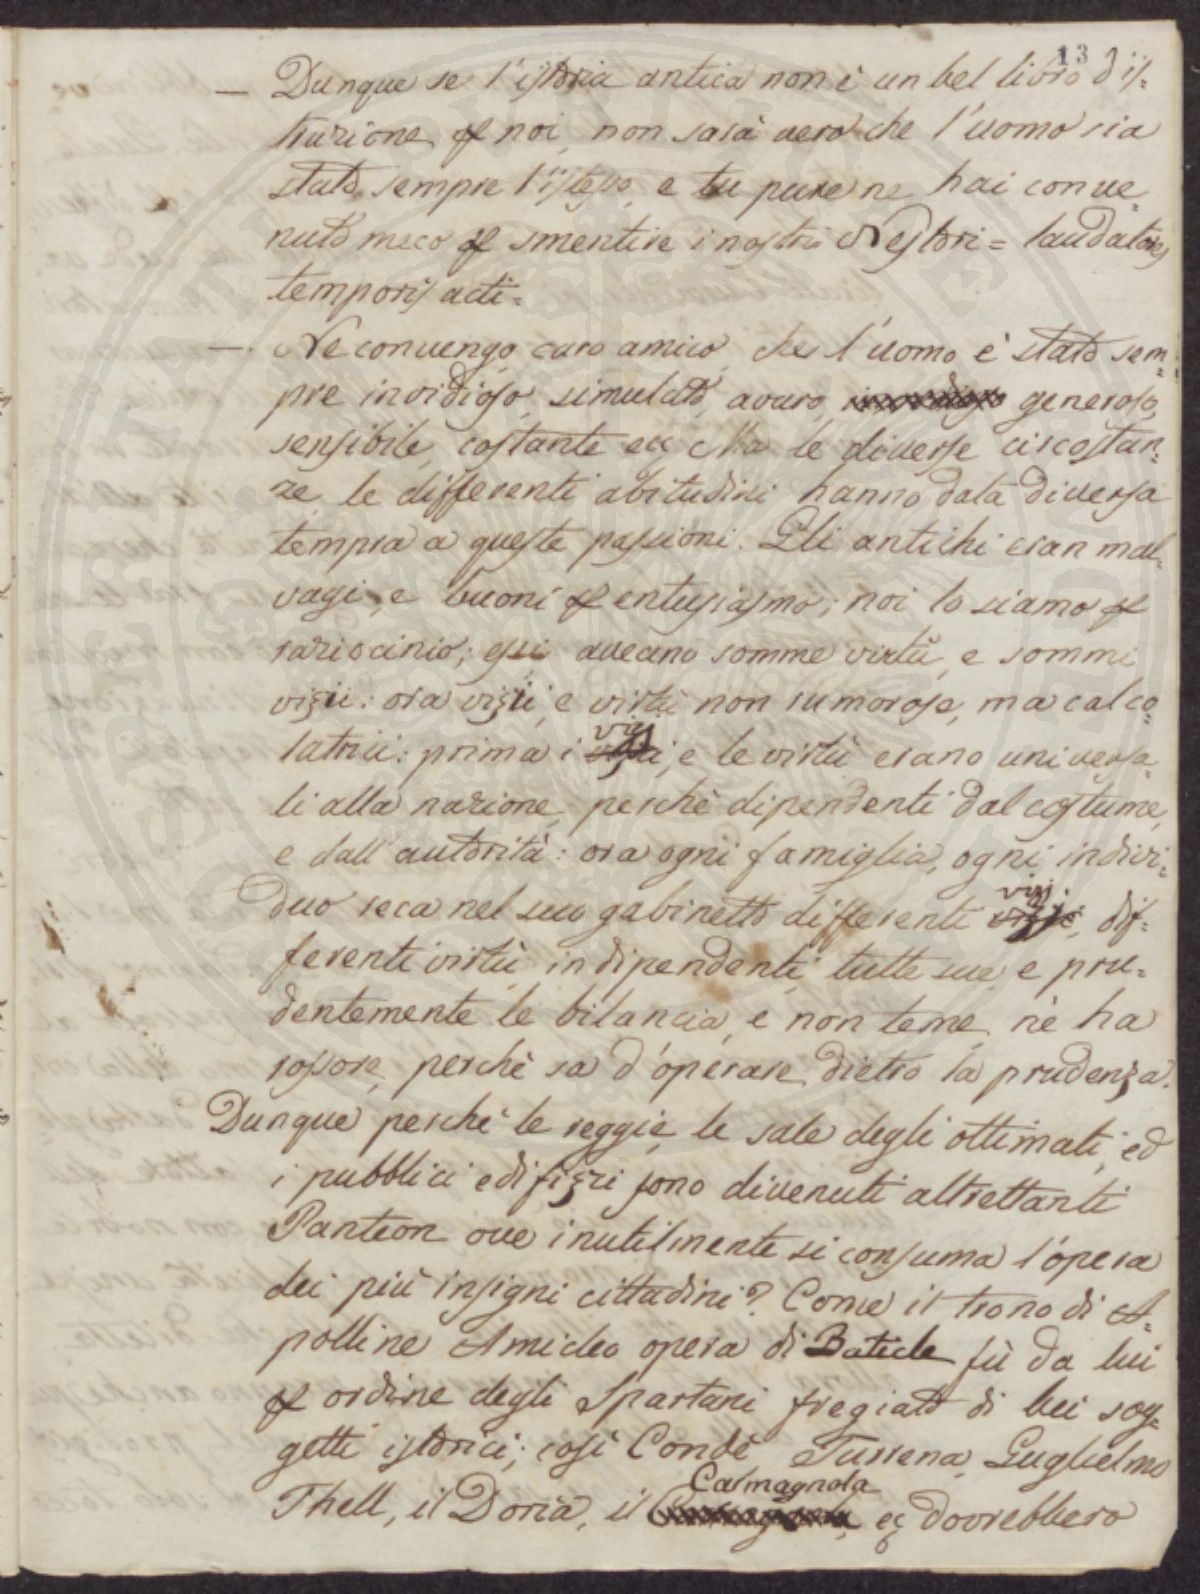 13
— Dunque se l'istoria antica non è un bel libro d'is=
truzione p noi, non sarà vero che l'uomo sia
stato sempre l'istesso, e tu pure ne hai conve=
nuto meco p smentire i nostri Nestori = laudatores
temporis acti=
— Ne convengo, caro amico, che l'uomo è stato sem=
pre invidioso, simulato, avaro, generoso,
sensibile, costante ec. Ma le diverse circostan=
ze le differenti abitudini hanno data diversa
tempra a queste passioni. Gli antichi eran mal=
vagi, e buoni p entusiasmo; noi lo siamo p
raziocinio; essi aveano somme virtù, e sommi
vizii: ora vizii, e virtù non rumorose, ma calco=
latrici: prima i vizj, e le virtù erano universa=
li alla nazione, perchè dipendenti dal costume,
e dall'autorità: ora ogni famiglia, ogni indivi=
duo reca nel suo gabinetto differenti vizj, dif=
ferenti virtù, indipendenti, tutte sue, e pru=
dentemente le bilancia, e non teme, nè ha
rossore, perchè sa d'operare dietro la prudenza.
Dunque perchè le reggie, le sale degli ottimati, ed
i pubblici edifizzi sono divenuti altrettanti
Panteon ove inutilmente si consuma l'opera
dei più insigni cittadini? Come il trono di A=
polline Amicleo opera di Baticle fù da lui
p ordine degli Spartani fregiato di bei sog=
getti istorici; così Condè, Turrena, Guglielmo
Thell, il Doria, il Carmagnola ec. dovrebbero